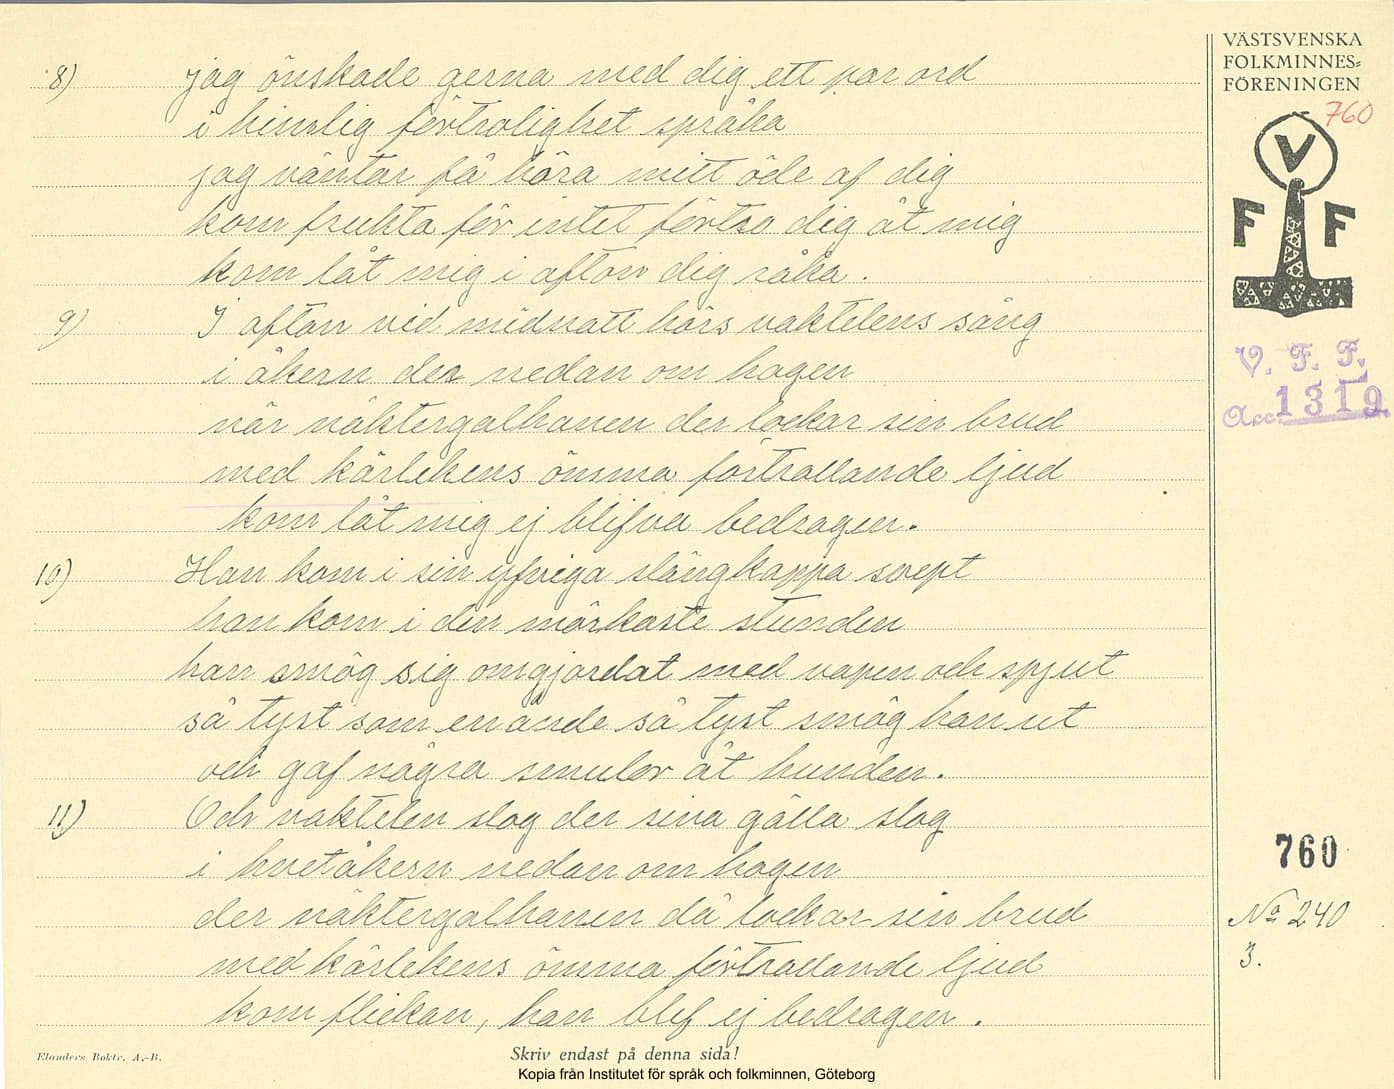 VÄSTSVENSKA
FOLKMINNES=
FÖRENINGEN
760
V
F F
V. F. F.
Acc. 1319.
8) jag önskade gerna med dig ett par ord
i himlig förtrolighet språka
jag väntar få höra mitt öde af dig
kom frukta för intet förtro dig åt mig
kom låt mig i afton dig råka.
9) I afton vid midnatt hörs vaktelens sång
i åkern der nedan om hagen
när näktergalhanen der lockar sin brud
med kärlekens ömma förtrollande ljud
kom låt mig ej blifva bedragen.
10) Han kom i sin yfviga slängkappa svept
han kom i den mörkaste stunden
han smög sig omgjordat med vapen och spjut
så tyst som en ande så tyst smög han ut
och gaf några smulor åt hunden.
11) Och vaktelen slog der sina gälla slag
i hvetåkern nedan om hagen
der näktergalhanen då lockar sin brud
med kärlekens ömma förtrollande ljud
kom flickan, han blef ej bedragen.
760
No 240
3.
Elanders Boktr. A.-B.
Skriv endast på denna sida!
Kopia från Institutet för språk och folkminnen, Göteborg